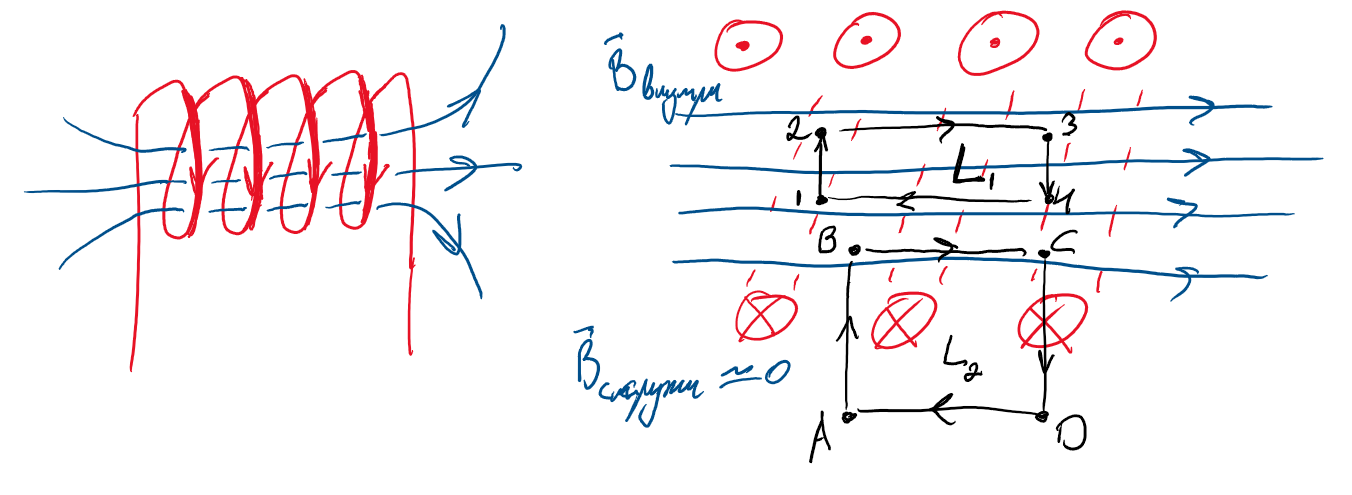 B⃗ внутри
2 3
L₁
1 4
B C
B⃗ снаружи ≃ 0
L₂
A D